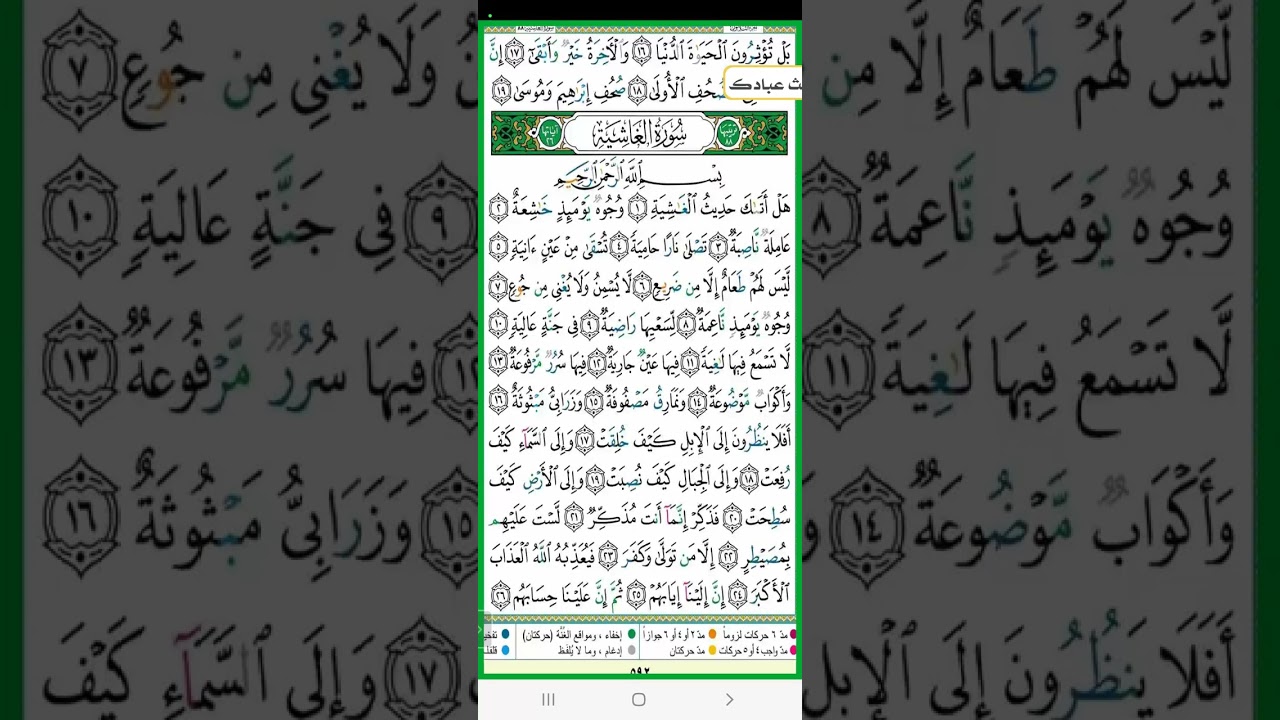 بَلْ تُؤْثِرُونَ الْحَيَوٰةَ الدُّنْيَا ١٦ وَالْآخِرَةُ خَيْرٌ وَأَبْقَىٰ ١٧ إِنَّ
صُحُفِ الْأُولَىٰ ١٨ صُحُفِ إِبْرَٰهِيمَ وَمُوسَىٰ ١٩
ث عبادك
ترتيبها ٨٨ سُورَةُ الْغَاشِيَةِ آياتها ٢٦
بِسْمِ اللَّهِ الرَّحْمَٰنِ الرَّحِيمِ
هَلْ أَتَىٰكَ حَدِيثُ الْغَٰشِيَةِ ١ وُجُوهٌ يَوْمَئِذٍ خَٰشِعَةٌ ٢
عَامِلَةٌ نَّاصِبَةٌ ٣ تَصْلَىٰ نَارًا حَامِيَةً ٤ تُسْقَىٰ مِنْ عَيْنٍ ءَانِيَةٍ ٥
لَّيْسَ لَهُمْ طَعَامٌ إِلَّا مِن ضَرِيعٍ ٦ لَّا يُسْمِنُ وَلَا يُغْنِى مِن جُوعٍ ٧
وُجُوهٌ يَوْمَئِذٍ نَّاعِمَةٌ ٨ لِّسَعْيِهَا رَاضِيَةٌ ٩ فِى جَنَّةٍ عَالِيَةٍ ١٠
لَّا تَسْمَعُ فِيهَا لَٰغِيَةً ١١ فِيهَا عَيْنٌ جَارِيَةٌ ١٢ فِيهَا سُرُرٌ مَّرْفُوعَةٌ ١٣
وَأَكْوَابٌ مَّوْضُوعَةٌ ١٤ وَنَمَارِقُ مَصْفُوفَةٌ ١٥ وَزَرَابِىُّ مَبْثُوثَةٌ ١٦
أَفَلَا يَنظُرُونَ إِلَى الْإِبِلِ كَيْفَ خُلِقَتْ ١٧ وَإِلَى السَّمَآءِ كَيْفَ
رُفِعَتْ ١٨ وَإِلَى الْجِبَالِ كَيْفَ نُصِبَتْ ١٩ وَإِلَى الْأَرْضِ كَيْفَ
سُطِحَتْ ٢٠ فَذَكِّرْ إِنَّمَآ أَنتَ مُذَكِّرٌ ٢١ لَّسْتَ عَلَيْهِم
بِمُصَيْطِرٍ ٢٢ إِلَّا مَن تَوَلَّىٰ وَكَفَرَ ٢٣ فَيُعَذِّبُهُ اللَّهُ الْعَذَابَ
الْأَكْبَرَ ٢٤ إِنَّ إِلَيْنَآ إِيَابَهُمْ ٢٥ ثُمَّ إِنَّ عَلَيْنَا حِسَابَهُم ٢٦
مدّ ٦ حركات لزوماً مدّ ٢ أو ٤ أو ٦ جوازاً إخفاء، ومواقع الغُنَّة (حركتان) تفخي
مدّ واجب ٤ أو ٥ حركات مدّ حركتان إدغام، وما لا يُلفَظ قلقلة
٥٩٢